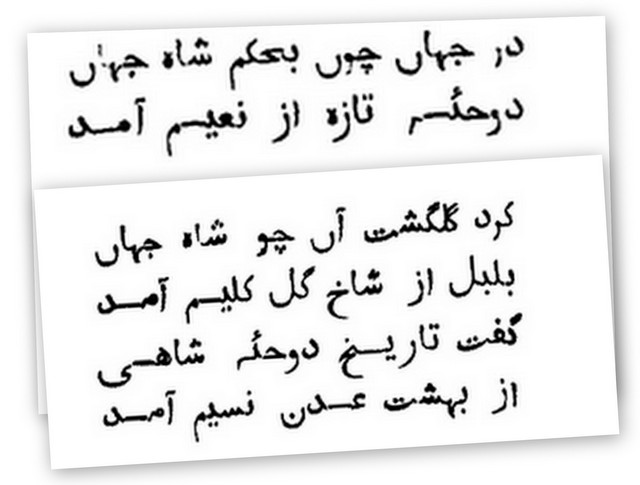 در جہاں چوں بحکم شاہ جہاں
دوحۂ تازہ از نعیم آمد
کرد گلگشت آں چو شاہ جہاں
بلبل از شاخ گل کلیم آمد
گفت تاریخ دوحۂ شاہی
از بہشت عدن نسیم آمد